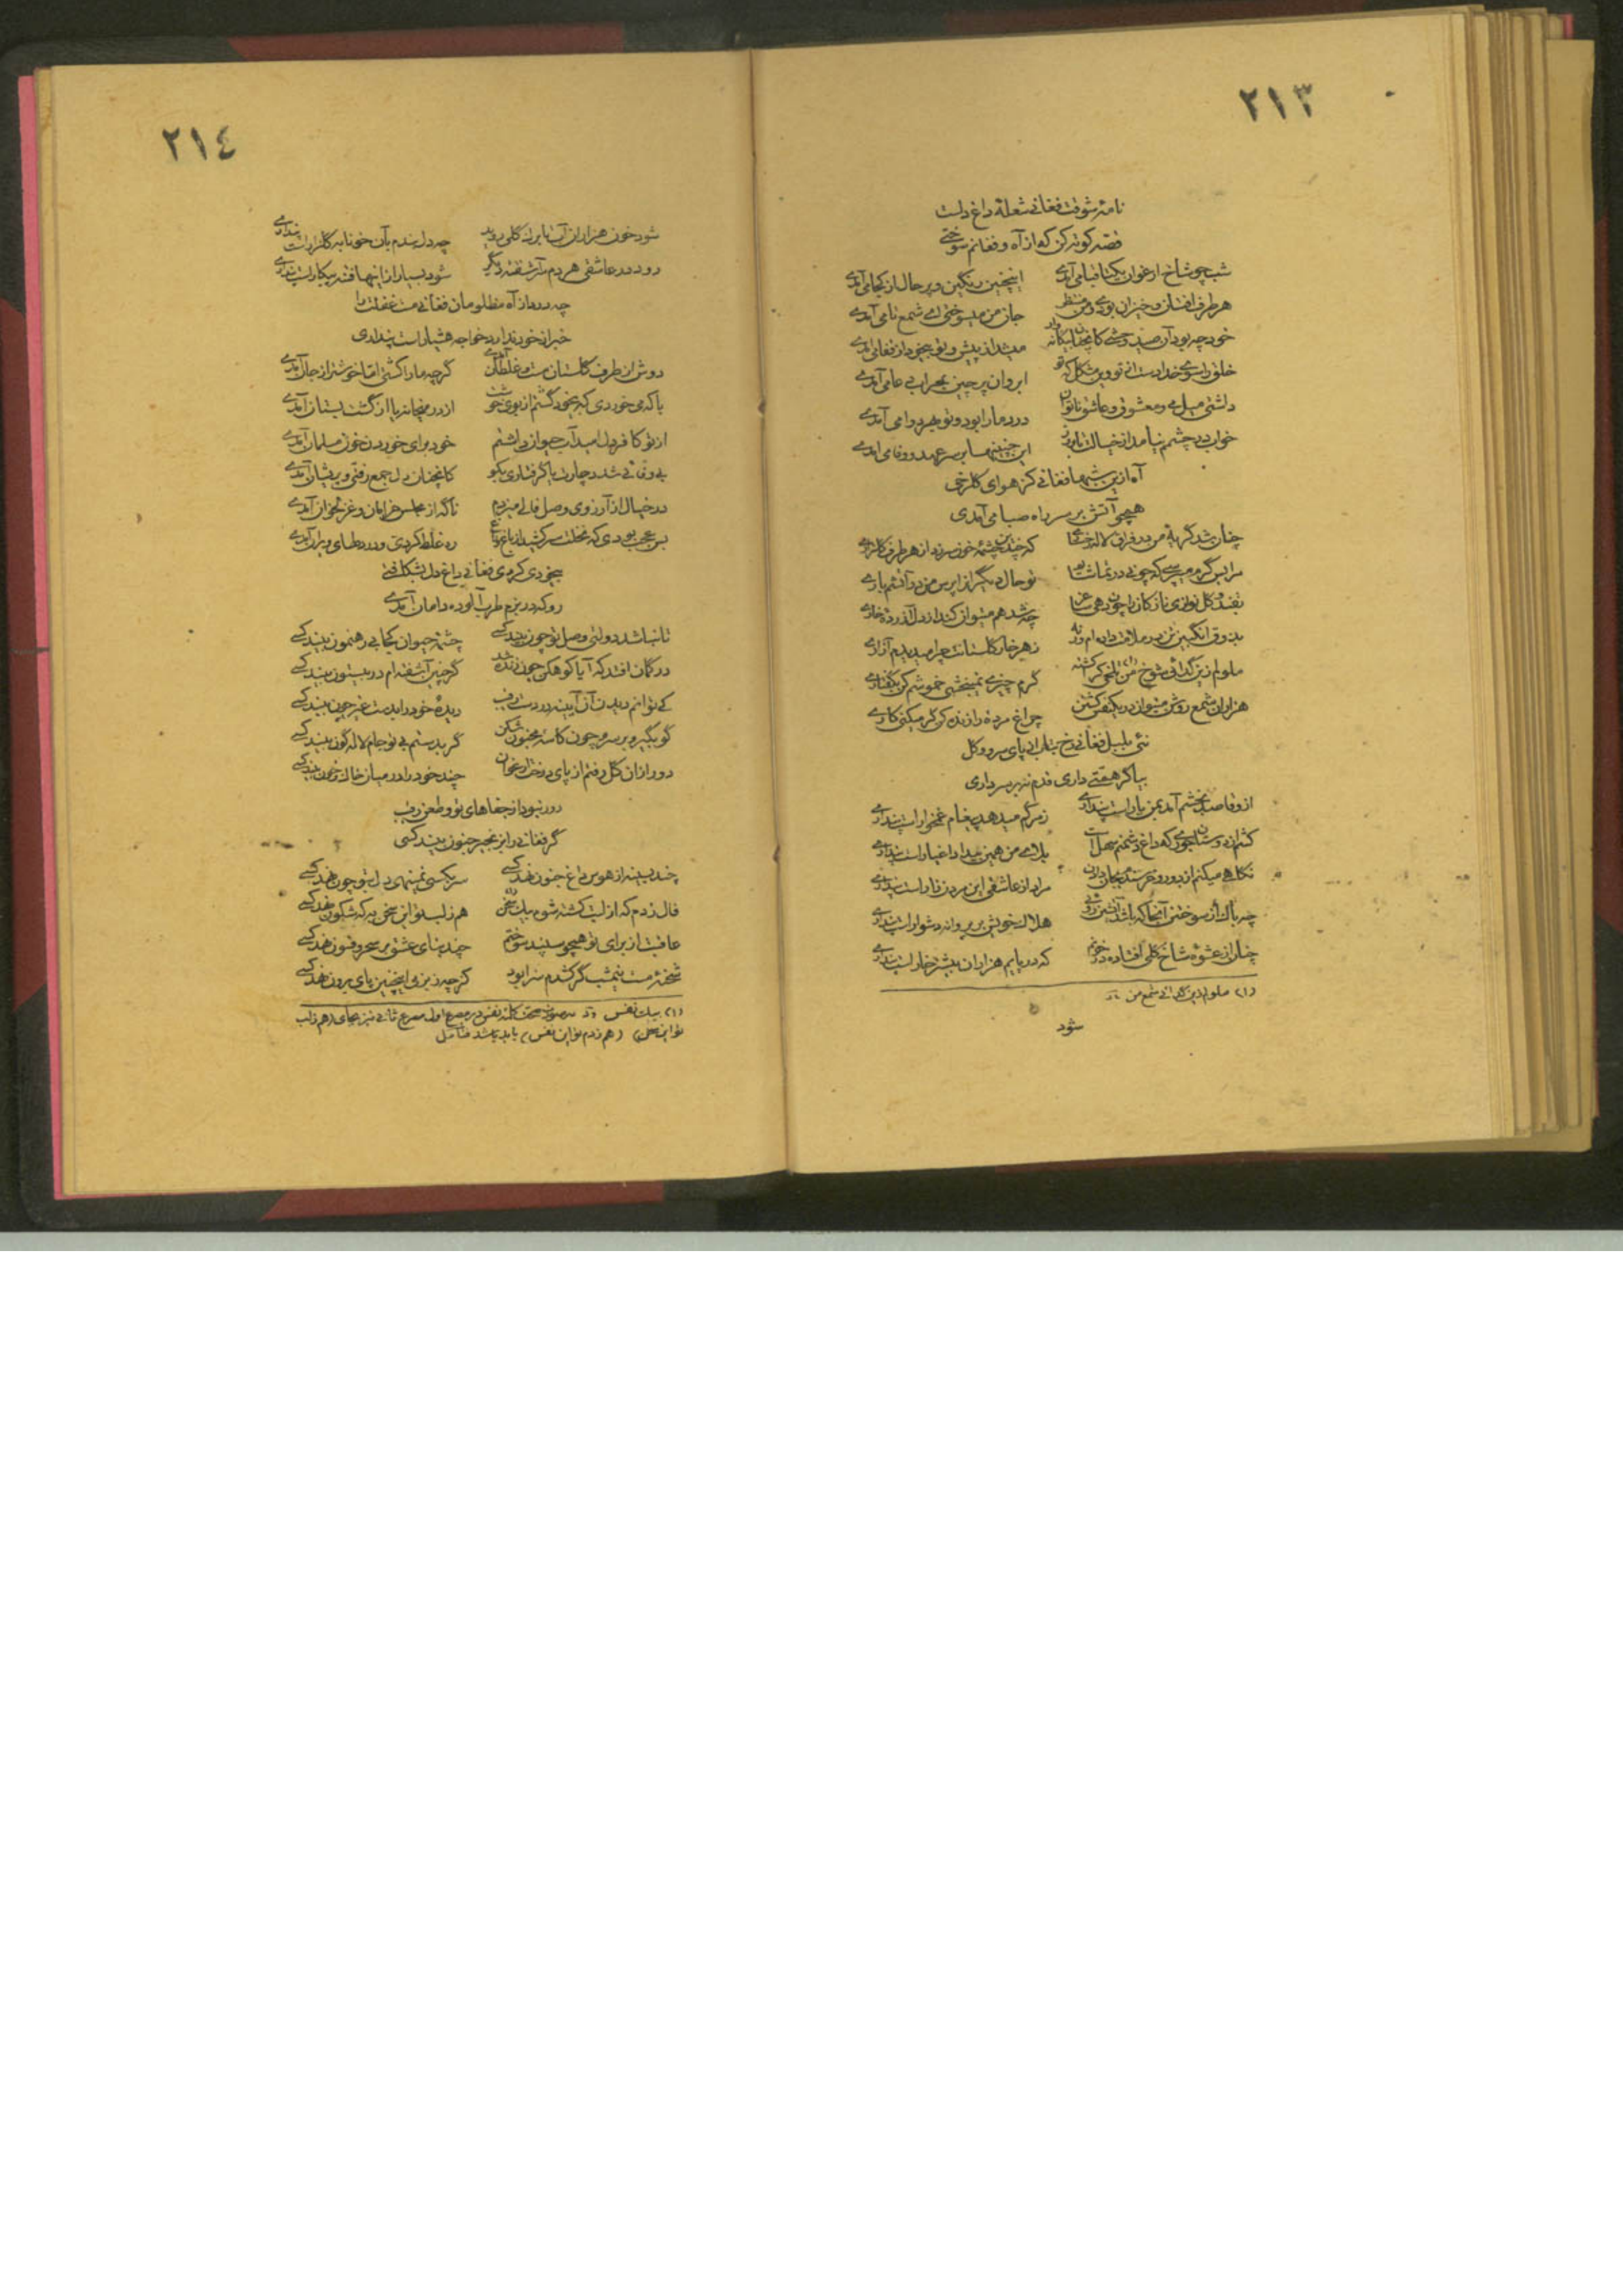 ٢١٣
نامهٔ شوقت فغانی شعلهٔ داغ دلست
قصه کوته کن که از آه و فغانم سوختی
شب چو شاخ ارغوان یکتا قبا می‌آمدی اینچنین رنگین و پرحال از کجا می‌آمدی
هر طرف افتان و خیزان بودی و من منتظر جان من میسوختی ای شمع تا می‌آمدی
خود چه بود آن صید وحشی کانچنان بیگانه وار میشد از پیش و تو بیخود از قفا می‌آمدی
خلق را سوی خداست از تو وین مشکل که تو ابروان پرچین بمحراب دعا می‌آمدی
داشتی میل می و معشوق و عاشق ناتوان درد ما را بود و تو بهر دوا می‌آمدی
خواب در چشمم نیامد از خیالت تا بروز این چنینها بر سر عهد و وفا می‌آمدی
آه ازین شبها فغانی کز هوای گلرخی
همچو آتش بر سر راه صبا می‌آمدی
چنان شد گریهٔ من در فراق لاله رخساری که چندین چشمهٔ خون سر زد از هر طرف گلزاری
مرا بس گرم میپرسی که چونی در تماشا تو حال دیگران پرس من در آتشم باری
بقند و گل نوازی نازکان را چون دهی ساغر چه شد هم میتوان کند از دل آزرده خاری
بذوق انگبین تن در ملامت داده‌ام ورنه زهر خار گلستانت چرا میدیدم آزاری
ملولم زین گدائی شوخ من (١) تلخی کن کشته کرم چیزی نمیبخشی خموشم کن بگفتاری
هزاران شمع روشن میتوان در یکنفس کشتن چراغ مرده را زنده کن گر میکنی کاری
نئی بلبل فغانی رخ متاب از پای سرو و گل
بیا گر همتی داری قدم نه بر سر داری
ازو قاصد بخشم آمد بمن یار است پنداری ز مرگم میدهد پیغام غمخوار است پنداری
کشم از دوستان جوری که داغ دشمنم سهل است بلای من همین بیداد اغیار است پنداری
نگاهی میکنم از دور و خرسندم بجان دادن مراد از عاشقی این مردن زار است پنداری
چه باک از سوختن آنجا که باشد آتشین روئی هلاک خویش بر پروانه دشوار است پنداری
چنان از عشوهٔ شاخ گلی افتاده در خونم که در پایم هزاران نیشتر خار است پنداری
(١) ملولم زین گدائی شمع من
شود
٢١٤
شود خون هزاران آب تا برگ گلی روید چه دل بندم بآن خونابه گلزار است پنداری
رود در عاشقی هر دم سر آشفتهٔ دیگر شود بسیار از اینها فتنه بیکار است پنداری
چه درد از آه مظلومان فغانی مست غفلت را
خبر از خود ندارد خواجه هشیار است پنداری
دوش از طرف گلستان مست و غلطان آمدی گرچه ما را کشتی اما خوشتر از جان آمدی
با که می خوردی که بیخود گشتم از بوی خوشت از در میخانه یا از گشت بستان آمدی
از تو کافر دل امید آب حیوان داشتم خود برای خوردن خون مسلمان آمدی
بی وفائی شد دچارت یا گرفتاری بگو کانچنان دل جمع رفتی و پریشان آمدی
در خیال از آرزوی وصل فالی میزدم ناگه از مجلس خرامان و غزلخوان آمدی
بس عجب بودی که نخلت سر کشید از باغ ره غلط کردی و در دلهای ویران آمدی
بیخودی کردی فغانی داغ دل بشکافتی
رو که در بزم طرب آلوده دامان آمدی
تا نباشد دولتی وصل تو چون بیند کسی چشمهٔ حیوان کجا بی رهنمون بیند کسی
در گمان افتد که آیا کوهکن چون زنده شد گر چنین آشفته‌ام در بیستون بیند کسی
کی توانم دیدن آن آیینه در دست رقیب دیدهٔ خود را بدست غیر چون بیند کسی
گو بگیر و بر سرم چون کاسهٔ مجنون شکن گر بدستم بی تو جام لاله گون بیند کسی
دور ازان گل رفتم از پای درخت ارغوان چند خود را در میان خاک و خون بیند کسی
دور نبود از جفاهای تو و طعن رقیب
گر فغانی در زنجیر جنون بیند کسی
چند بسینه از هوس داغ جنون نهد کسی سر بکسی نمینهی دل بتو چون نهد کسی
فال زدم که از لبت کشته شوم بیک سخن (١) هم ز لب تو این سخن به که شگون نهد کسی
عاقبت از برای تو همچو سپند سوختم چند بنای عشق بر سحر و فسون نهد کسی
شحنهٔ مست نیمشب گر کشدم سزا بود گرچه ز بزم اینچنین پای برون نهد کسی
(١) بیک نفس در صورت صحت کلمهٔ نفس در مصرع اول مصرع ثانی نیز بجای (هم ز لب
تو این سخن) (هم ز دم تو این نفس) باید باشد فتامل